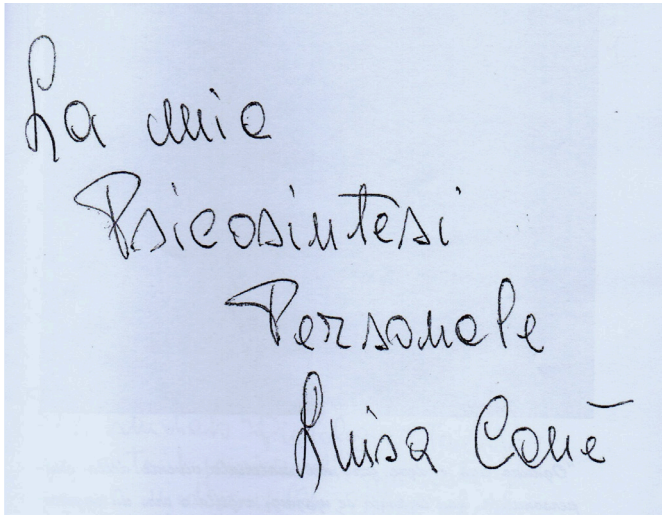 La mia
Psicosintesi
Personale
Luisa Conè